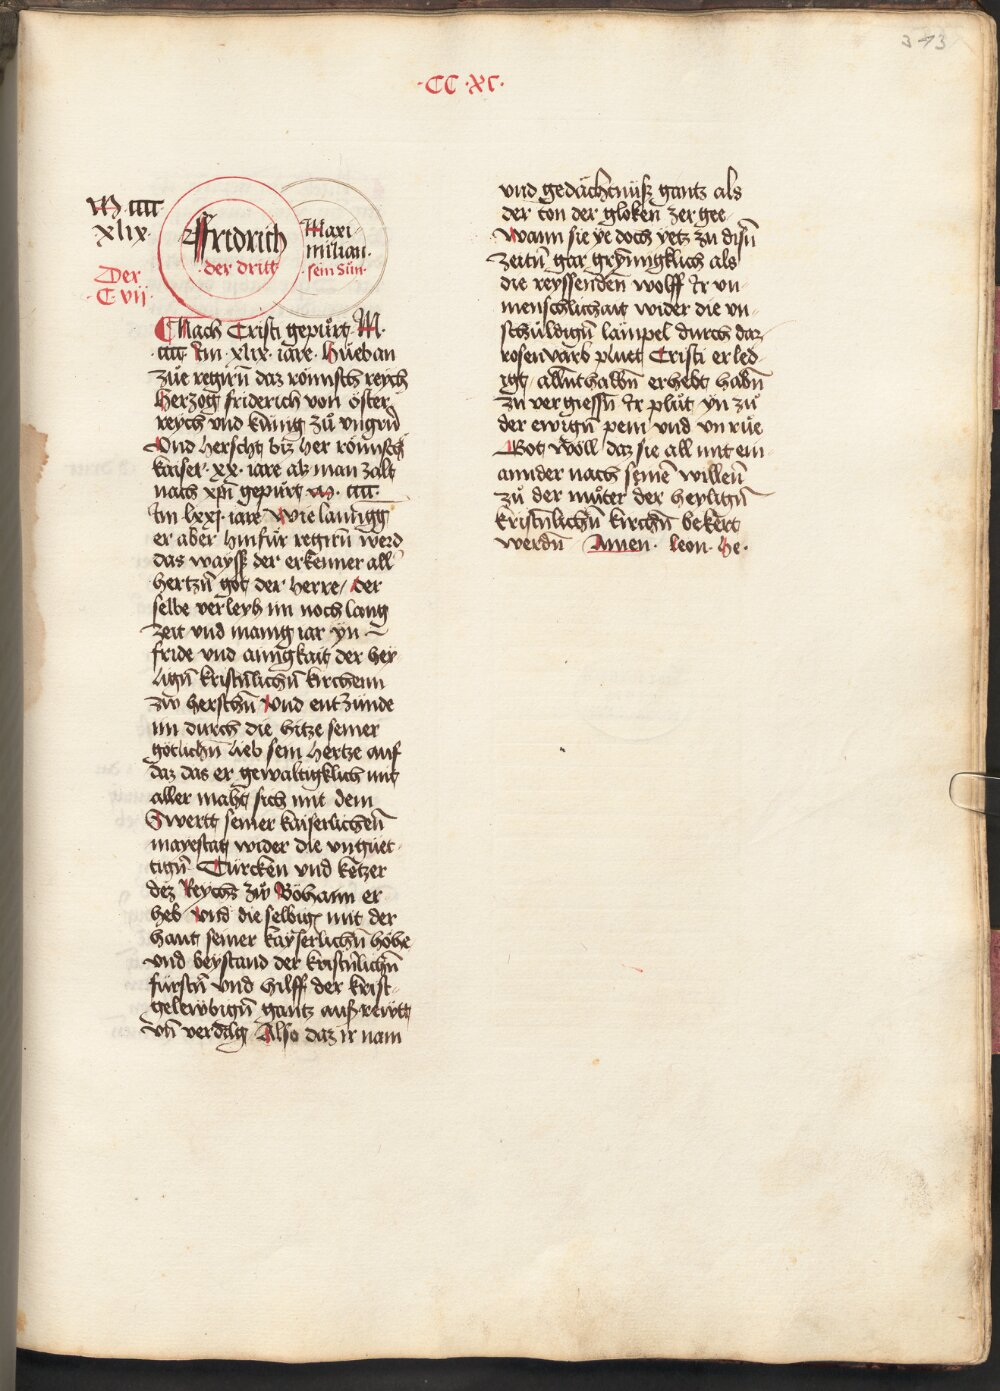 313
·CC·XC·
M·cccc·
xlix·
Der
·C vij·
Fridrich
·der dritt·
Maxi-
milian·
·sein Sůn·
Nach Cristi gepůrt· M·
·cccc· Im· xlix· iare· Hůeban
zůe regirn̄ daz römisch reych
Herzog friderich von öster
reych vnd kůnig zů vngrn̄
Vnd herscht biz her römisch
kaiser· xx· iare alz man zalt
nach xp̄i gepůrt M· cccc·
Im lxxj· iare Wie lannngg
er aber hinfůr regirn̄ werd
das wayss der erkenner all
hertzn̄ got der herre/ der
selbe verleyh im noch lang
zeit vnd manig iar yn
fride vnd ainigkait der hey
lign̄ kristn̄lichn̄ kirchenn
zw herschn̄ Vnd entzůnde
im durch die hitze seiner
götlichn̄ lieb sein hertze auf
daz das er gewaltigklich mit
aller maht sich mit dem
Swertt seiner kaiserlichenn̄
mayestat wider die vngůet-
tign̄ Tůrcken vnd ketzer
dez Reychs zw Böhann er
heb Vnd die selbign̄ mit der
hant seiner kayserlichn̄ höhe
vnd beystand der kristn̄lichn̄
fůrstn̄ vnd hilff der krist-
gelewbign̄ gantz auf rewtt
vn̄ verdilg Also daz ir nam
vnd gedächtnůsz gantz als
der ton der gloken zergee-
Wann sie ye doch yetz zu disn̄
zeitn̄ gar grymigklich als
die reyssenden wolff Er vn
menschlichait wider die vn-
schůldign̄ lämpel durch daz
rosenvarb pluet Cristi erled-
igt/ allnthalbn̄ erhebt habn̄
zu vergiessn̄ Er plůt yn zů
der ewign̄ pein vnd vnrůe
Got wöll daz sie all mit ein-
annder nach seinē willen̄
zů der můter der heylign̄
kristn̄lichn̄ kirchn̄ bekert
werdn̄ Amen· leon· he·